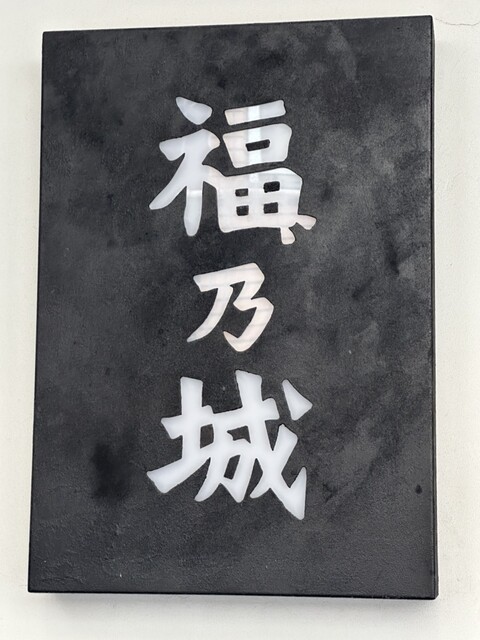 福乃城